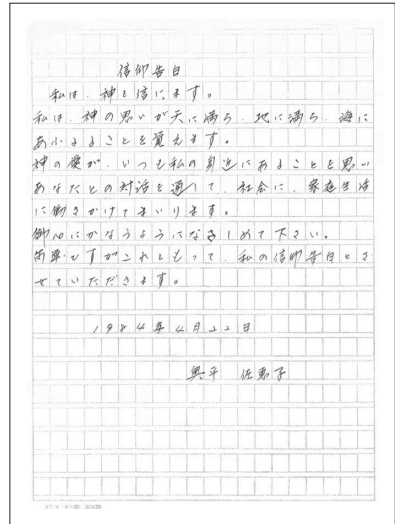 信仰告白
私は、神を信じます。
私は、神の思いが天に満ち、地に満ち、海に
あふれることを覚えます。
神の愛が、いつも私の身近にあることを思い
あなたとの対話を通して、社会に、家庭生活
に働きかけてまいります。
御心にかなうようになさしめて下さい。
簡単ですがこれをもって、私の信仰告白とさ
せていただきます。
1984年4月22日
奥平 佐恵子